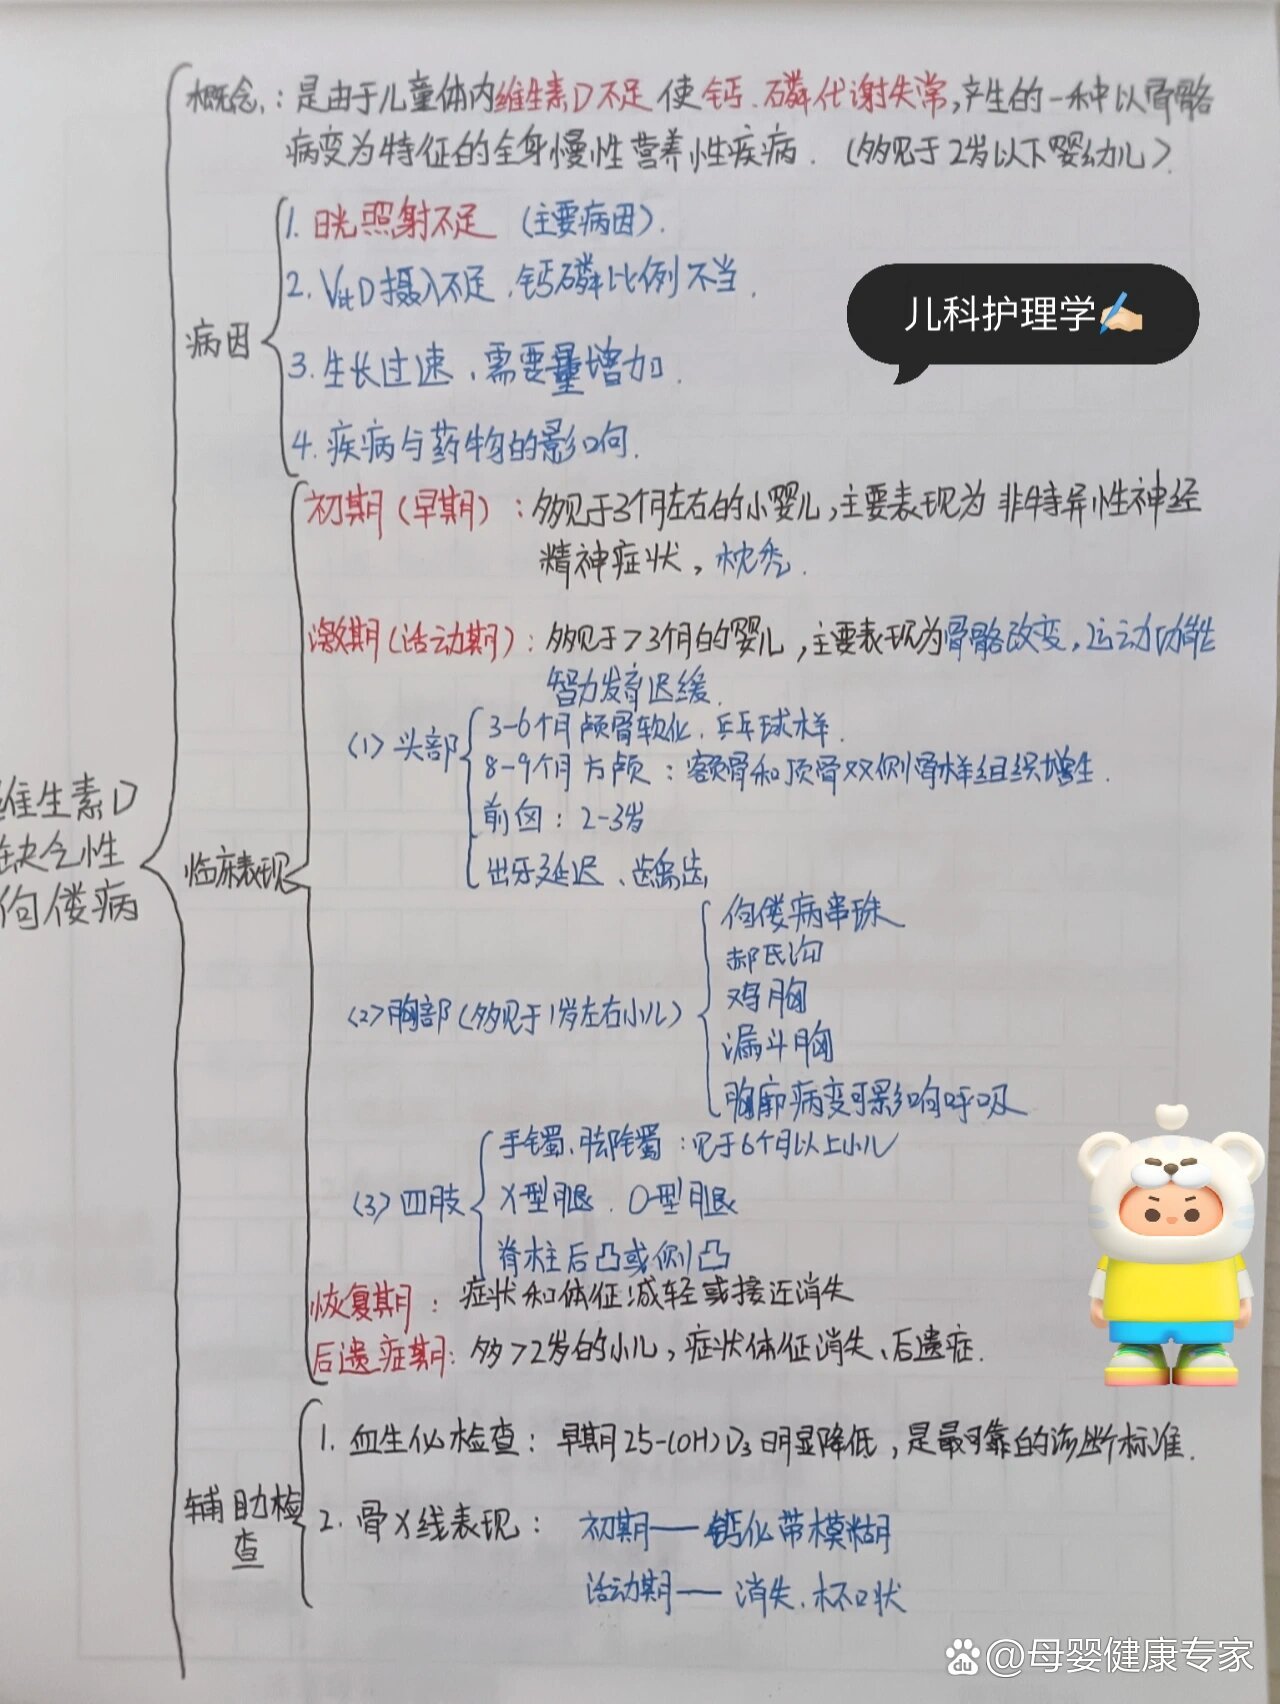 概念:是由于儿童体内维生素D不足使钙、磷代谢失常,产生的一种以骨骼
病变为特征的全身慢性营养性疾病.(多见于2岁以下婴幼儿).
病因
1.日光照射不足(主要病因).
2.VitD摄入不足、钙磷比例不当.
儿科护理学✍🏻
3.生长过速、需要量增加.
4.疾病与药物的影响.
初期(早期):多见于3个月左右的小婴儿,主要表现为非特异性神经
精神症状,枕秃.
激期(活动期):多见于>3个月的婴儿,主要表现为骨骼改变,运动功能
智力发育迟缓.
(1)头部
3-6个月颅骨软化、乒乓球样.
8-9个月方颅:额骨和顶骨双侧骨样组织增生.
前囟:2-3岁
出牙延迟、龋齿
维生素D
缺乏性
佝偻病
临床表现
(2)胸部(多见于1岁左右小儿)
佝偻病串珠
郝氏沟
鸡胸
漏斗胸
胸廓病变可影响呼吸
(3)四肢
手镯、脚镯:见于6个月以上小儿
X型腿、O型腿
脊柱后凸或侧凸
恢复期:症状和体征减轻或接近消失
后遗症期:多>2岁的小儿,症状体征消失、后遗症.
辅助检
查
1.血生化检查:早期25-(OH)D₃明显降低,是最可靠的诊断标准.
2.骨X线表现:初期——钙化带模糊
活动期——消失、杯口状
@母婴健康专家